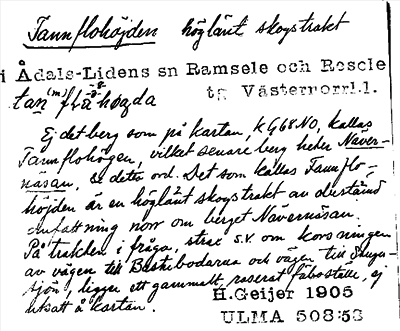 Tannflohöjden höglänt skogstrakt
i Ådals-Lidens sn Ramsele och Resele
tg Västernorrl.l.
Ej det berg som på kartan, KG68NO, kallas
Tannflohögen, vilket senare berg heter Näver-
näsan, se detta ord. Det som kallas Tannflo-
höjden är en höglänt skogstrakt av
omfattning norr om berget Nävernäsan.
På trakten i fråga, strax s.v. om korsningen
av vägen till Baksbodarna och vägen till
sjön, ligger ett gammalt, raserat fäboställe, ej
utsatt å kartan.
H.Geijer 1905
ULMA 508:58